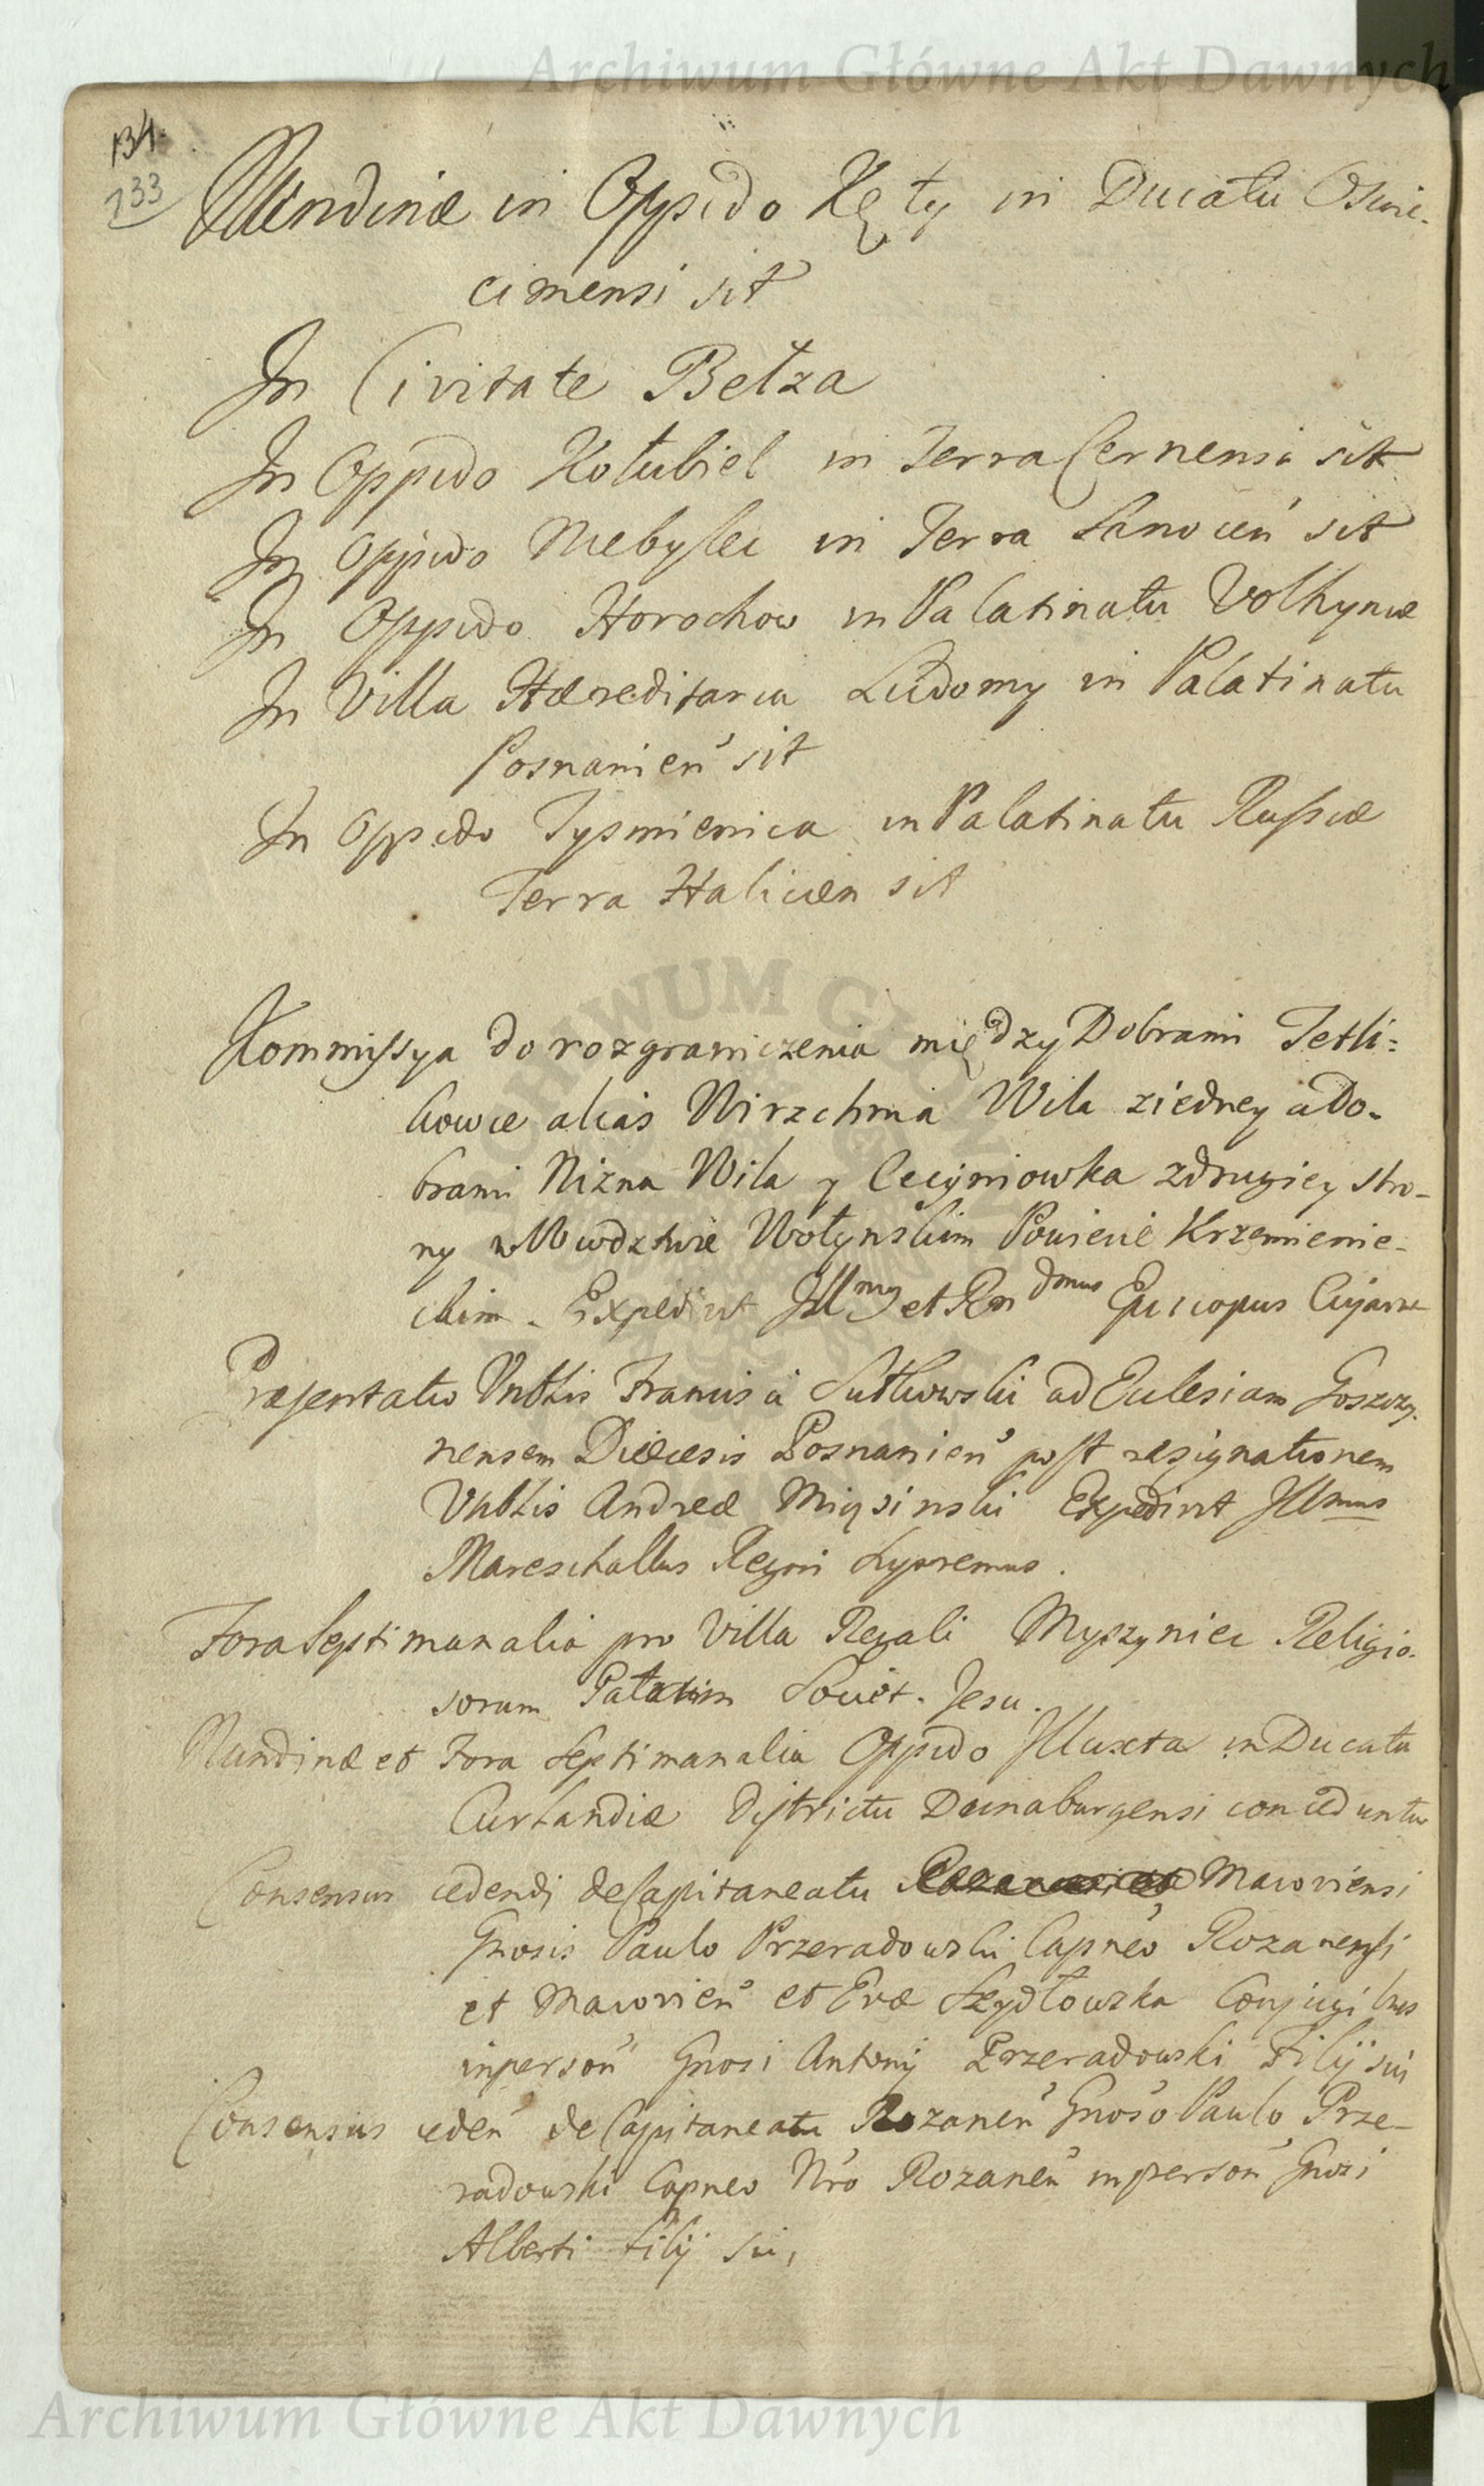 Archiwum Główne Akt Dawnych
134.
233
Nundinæ in Oppido Kęty in Ducatu Oswie-
cimensi sit
In Civitate Bełza
In Oppido Kołubiel in Terra Cernensi sit
In Oppido Niebylec in Terra Sanocen sit
In Oppido Horochow in Palatinatu Volhyniæ
In Villa Hæreditaria Ludomy in Palatinatu
Posnanien sit
In Oppido Tysmienica in Palatinatu Russiæ
Terra Halicien sit
Kommissya do rozgraniczenia między Dobrami Tetli=
kowce alias Wirzchnia Wila z iedney a Do-
brami Nizna Wila y Cecyniowka z drugiey stro-
ny w Wwdztwie Wołynskim Powiecie Krzemienie-
ckim. Expedivit Illmus et Rndmus Episcopus Cujavie
Præsentatio Vnblis Francisci Sutkowski ad Eclesiam Goszczy-
nensem Diœcesis Posnanien post resignationem
Vnblis Andreæ Miąsinski Expedivit Illmus
Mareschallus Regni Supremus.
Fora Septimanalia pro Villa Regali Myszyniec Religio-
sorum Patrum Societ. Jesu.
Nundinæ et Fora Septimanalia Oppido Illuxta in Ducatu
Curlandiæ Districtu Dunaburgensi conceduntur
Consensus cedendi de Capitaneatu Macoviensi
Gnosis Paulo Przeradowski Capneo Rozanensi
et Macovien et Evæ Szydłowska Conjugibus
in person Gnosi Antonij Przeradowski Filij sui
Consensus ceden de Capitaneatu Rozanen Gnoso Paulo Prze-
radowski Capneo Nro Rozanen in person Gnosi
Alberti filij sui,
Archiwum Główne Akt Dawnych